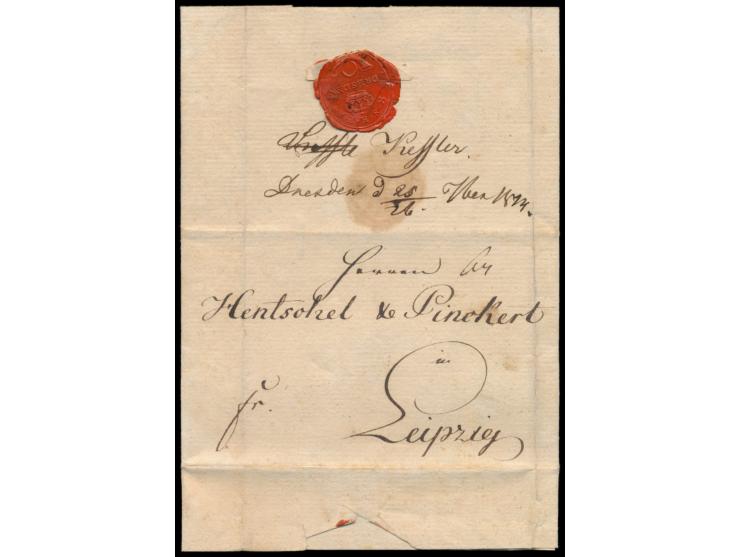 Kessler.
Dresden d 25/26. 7ber 1814.
Herren
Hentschel & Pinckert
in
Leipzig
fr.